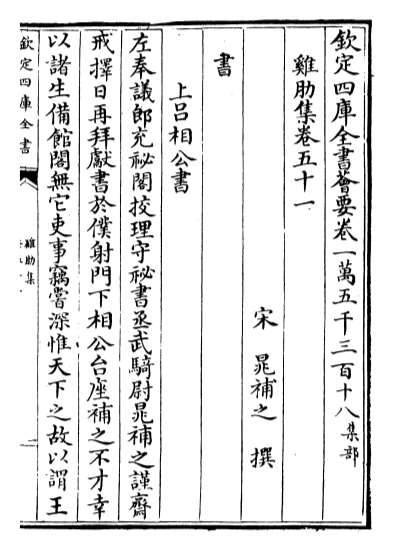 欽定四庫全書薈要卷一萬五千三百十八集部
雞肋集卷五十一
宋 晁補之 撰
書
上呂相公書
左奉議郎充祕閣挍理守祕書丞武騎尉晁補之謹齋
戒擇日再拜獻書於僕射門下相公台座補之不才幸
以諸生備館閣無它吏事竊嘗深惟天下之故以謂王
欽定四庫全書
雞肋集